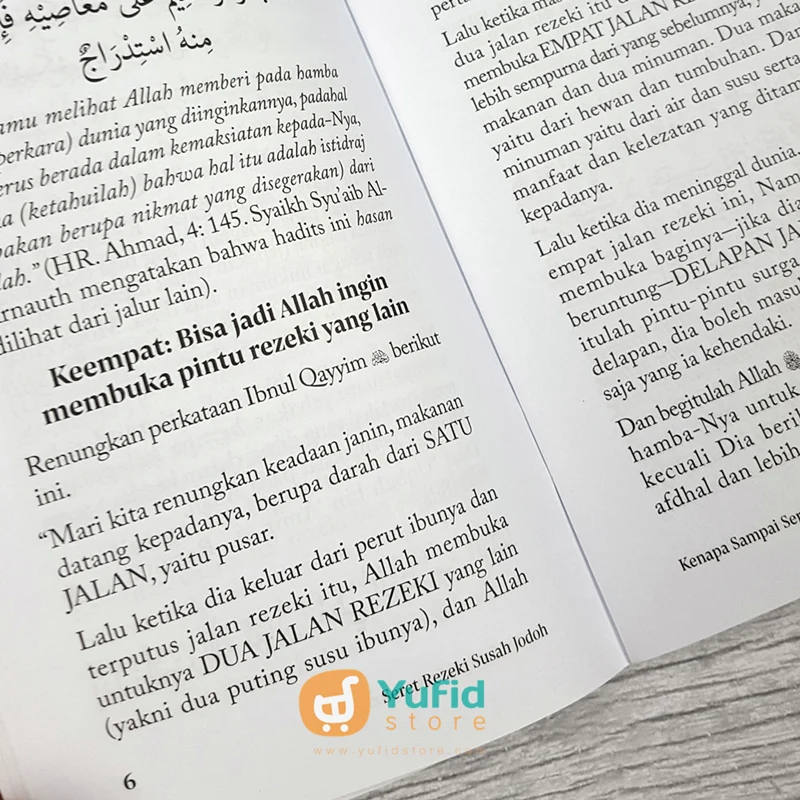 عَلَى مَعَاصِيْهِ
مِنْهُ اسْتِدْرَاجٌ
melihat Allah memberi pada hamba
dunia yang diinginkannya, padahal
berada dalam kemaksiatan kepada-Nya,
(ketahuilah) bahwa hal itu adalah istidraj
berupa nikmat yang disegerakan) dari
(HR. Ahmad, 4: 145. Syaikh Syu'aib Al-
mengatakan bahwa hadits ini hasan
dilihat dari jalur lain).
Keempat: Bisa jadi Allah ingin
membuka pintu rezeki yang lain
Renungkan perkataan Ibnul Qayyim berikut
ini.
“Mari kita renungkan keadaan janin, makanan
datang kepadanya, berupa darah dari SATU
JALAN, yaitu pusar.
Lalu ketika dia keluar dari perut ibunya dan
terputus jalan rezeki itu, Allah membuka
untuknya DUA JALAN REZEKI yang lain
(yakni dua puting susu ibunya), dan Allah
Seret Rezeki Susah Jodoh
6
Lalu ketika
dua jalan rezeki itu
membuka EMPAT JALAN
lebih sempurna dari yang sebelumnya,
makanan dan dua minuman. Dua
yaitu dari hewan dan tumbuhan.
minuman yaitu dari air dan susu serta
manfaat dan kelezatan yang
kepadanya.
Lalu ketika dia meninggal dunia,
empat jalan rezeki ini,
membuka baginya—jika dia
beruntung—DELAPAN
itulah pintu-pintu surga
delapan, dia boleh
saja yang ia kehendaki.
Dan begitulah Allah
hamba-Nya untuk
kecuali Dia
afdhal dan lebih
Kenapa Sampai
Yufid
store
www.yufidstore.com